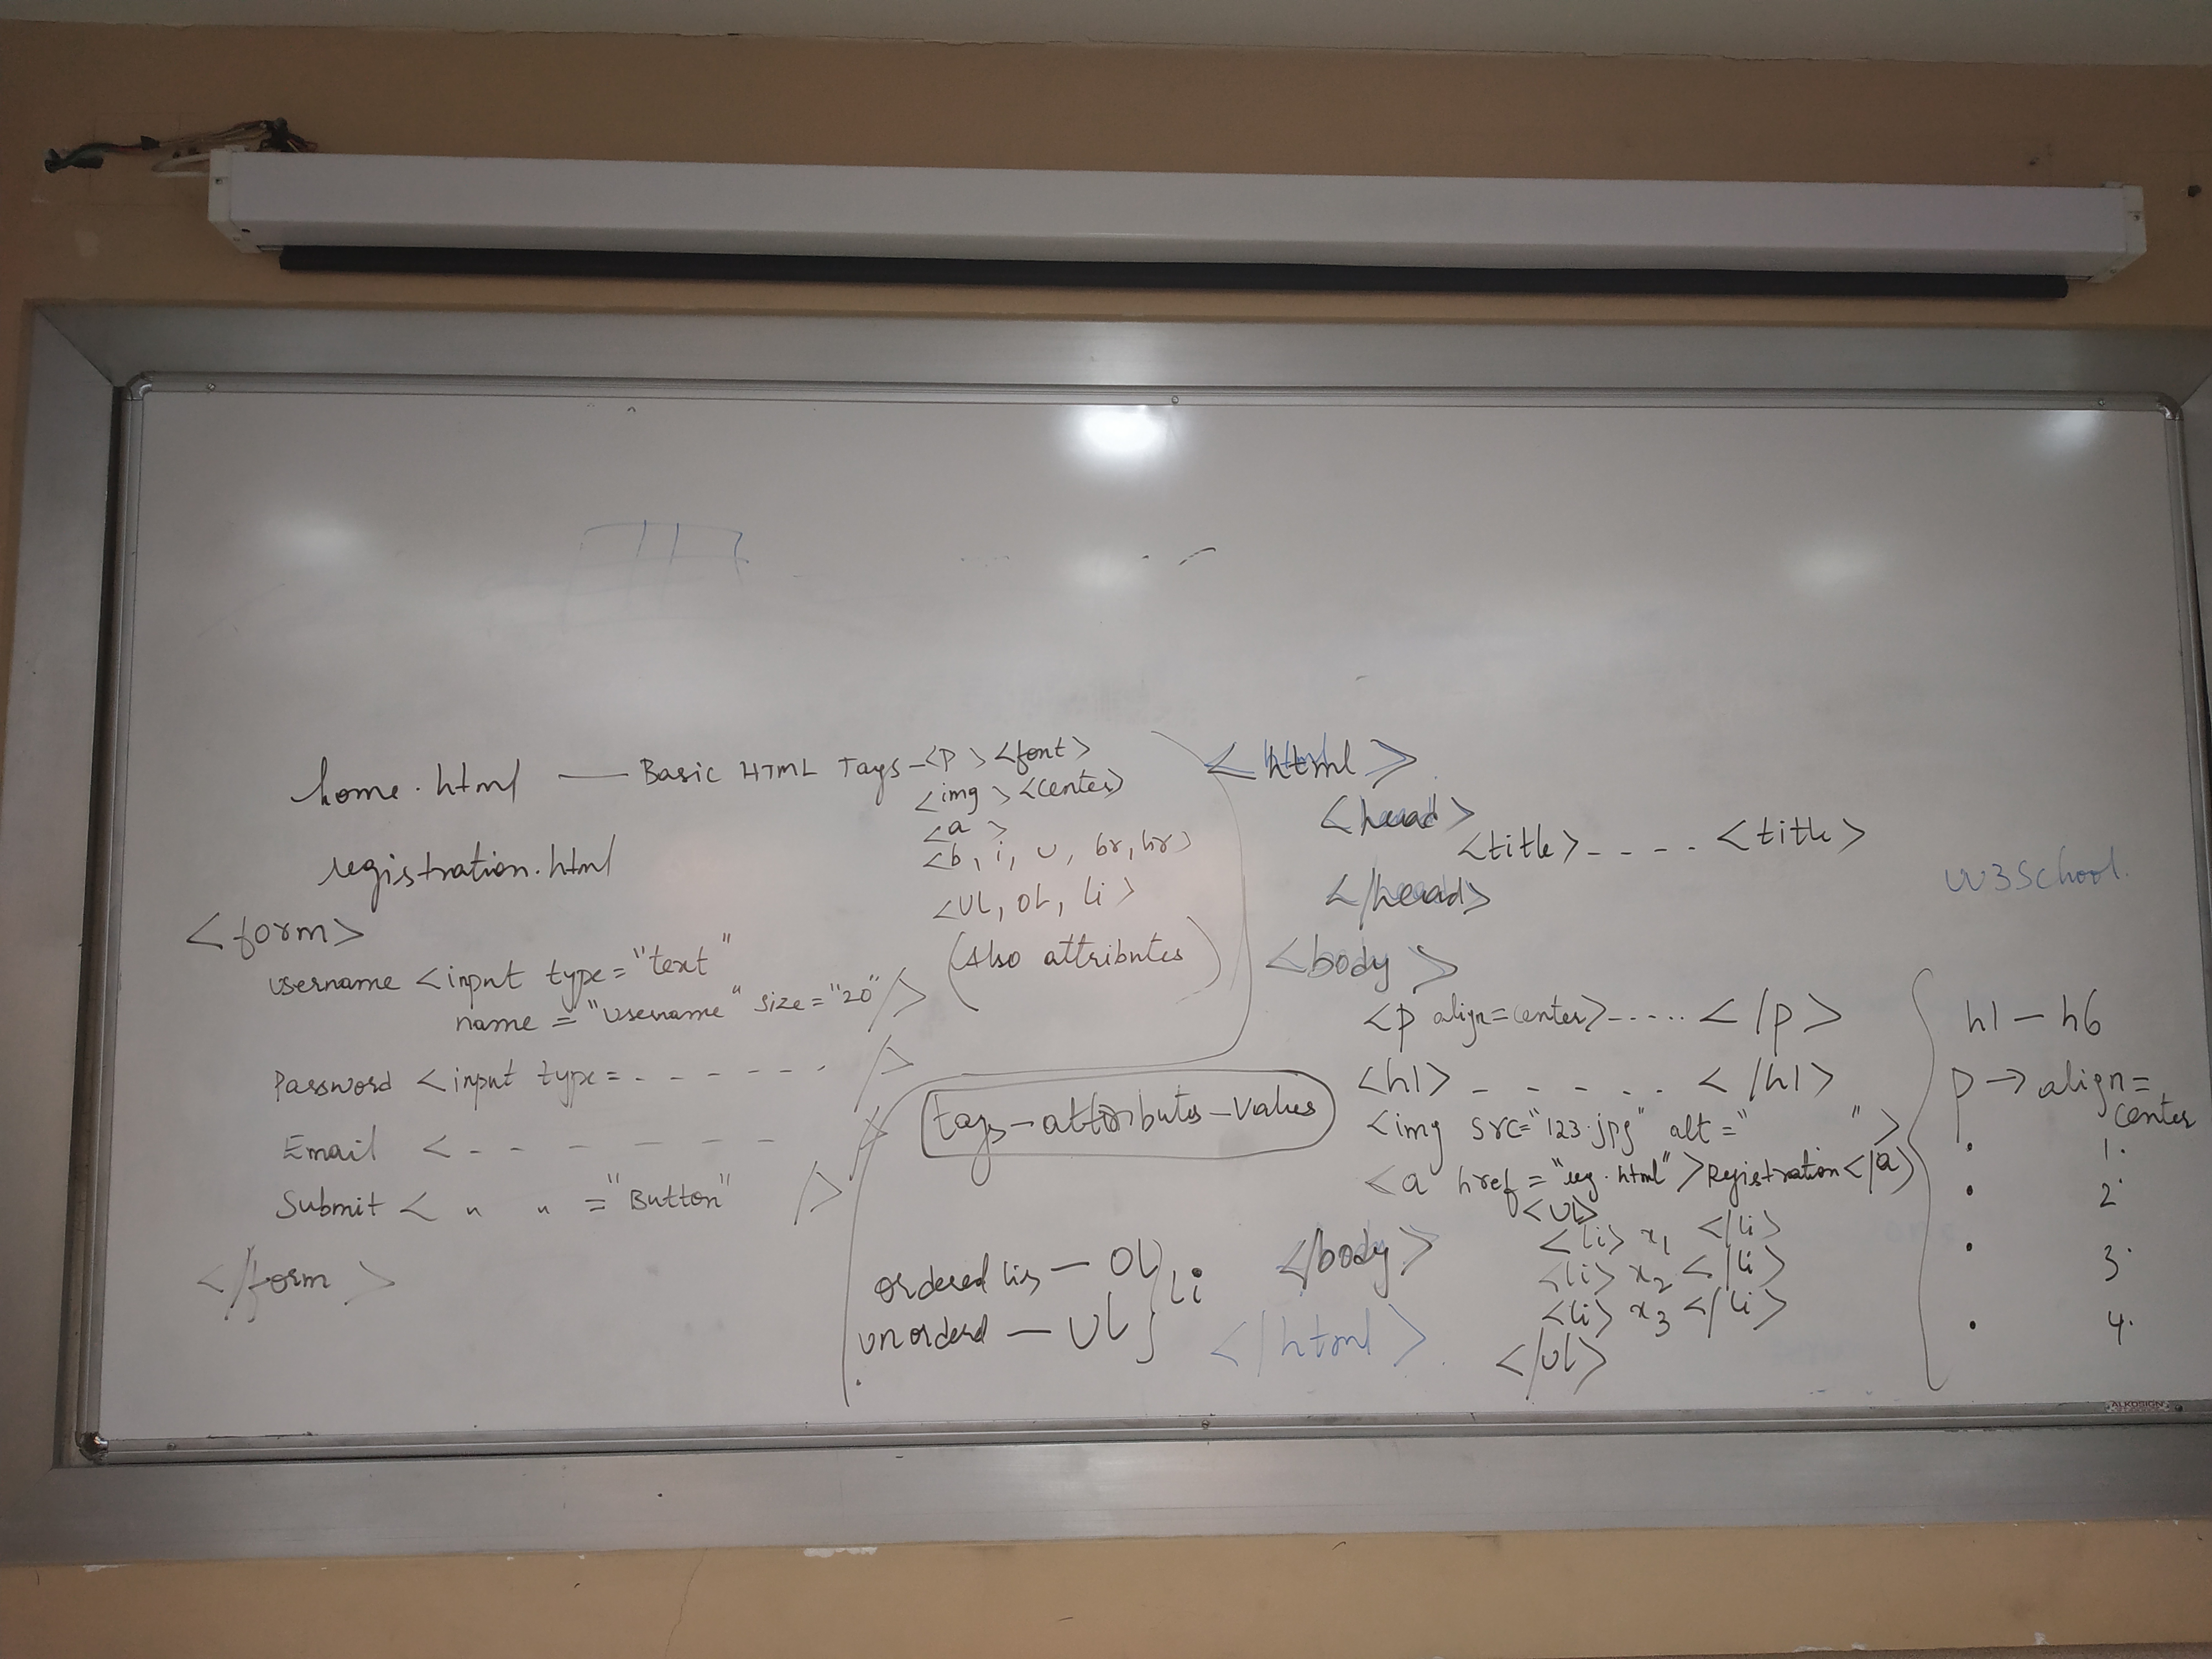 home.html — Basic HTML Tags - <p> <font>
<img> <center>
<a >
<b, i, u, br, hr>
<UL, OL, li>
(Also attributes)
registration.html
<form>
username <input type="text"
name = "username" size="20" />
Password <input type=- - - - - - - />
Email < - - - - - - />
Submit < " " ="Button" />
</form >
tags-attributes-values
ordered lis — OL } li
unorderd — UL
<html>
<head>
<title>- - - - <title>
</head>
<body >
<p align=center>- - - - - </p>
<h1> - - - - - </h1>
<img src="123.jpg" alt=" ">
<a href="reg.html">Registration</a>
<UL>
<li> x1 </li>
<li> x2 </li>
<li> x3 </li>
</UL>
</body>
</html>
W3School.
h1 — h6
p → align=
center
• 1.
• 2.
• 3.
• 4.